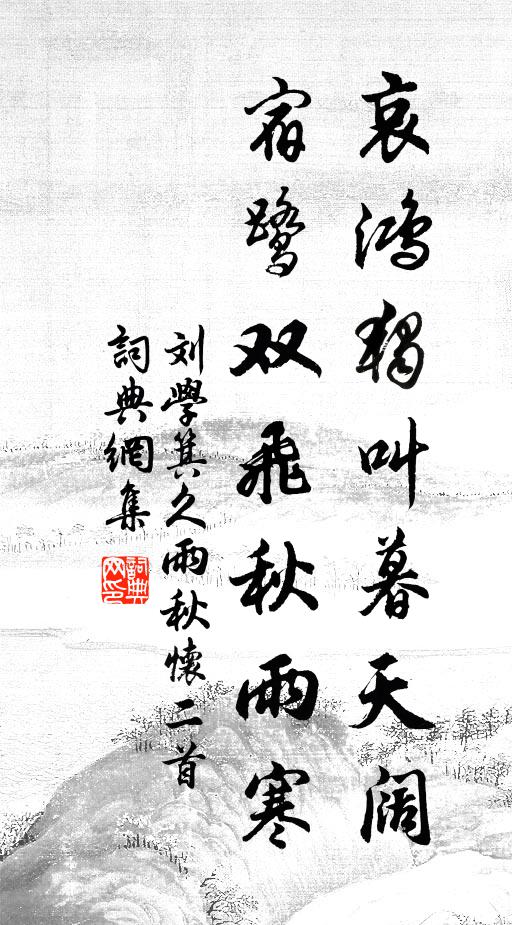 哀鴻獨叫暮天阔
宿鷺双飛秋雨寒
刘學箕久雨秋懷二首
詞典網集
詞典网印